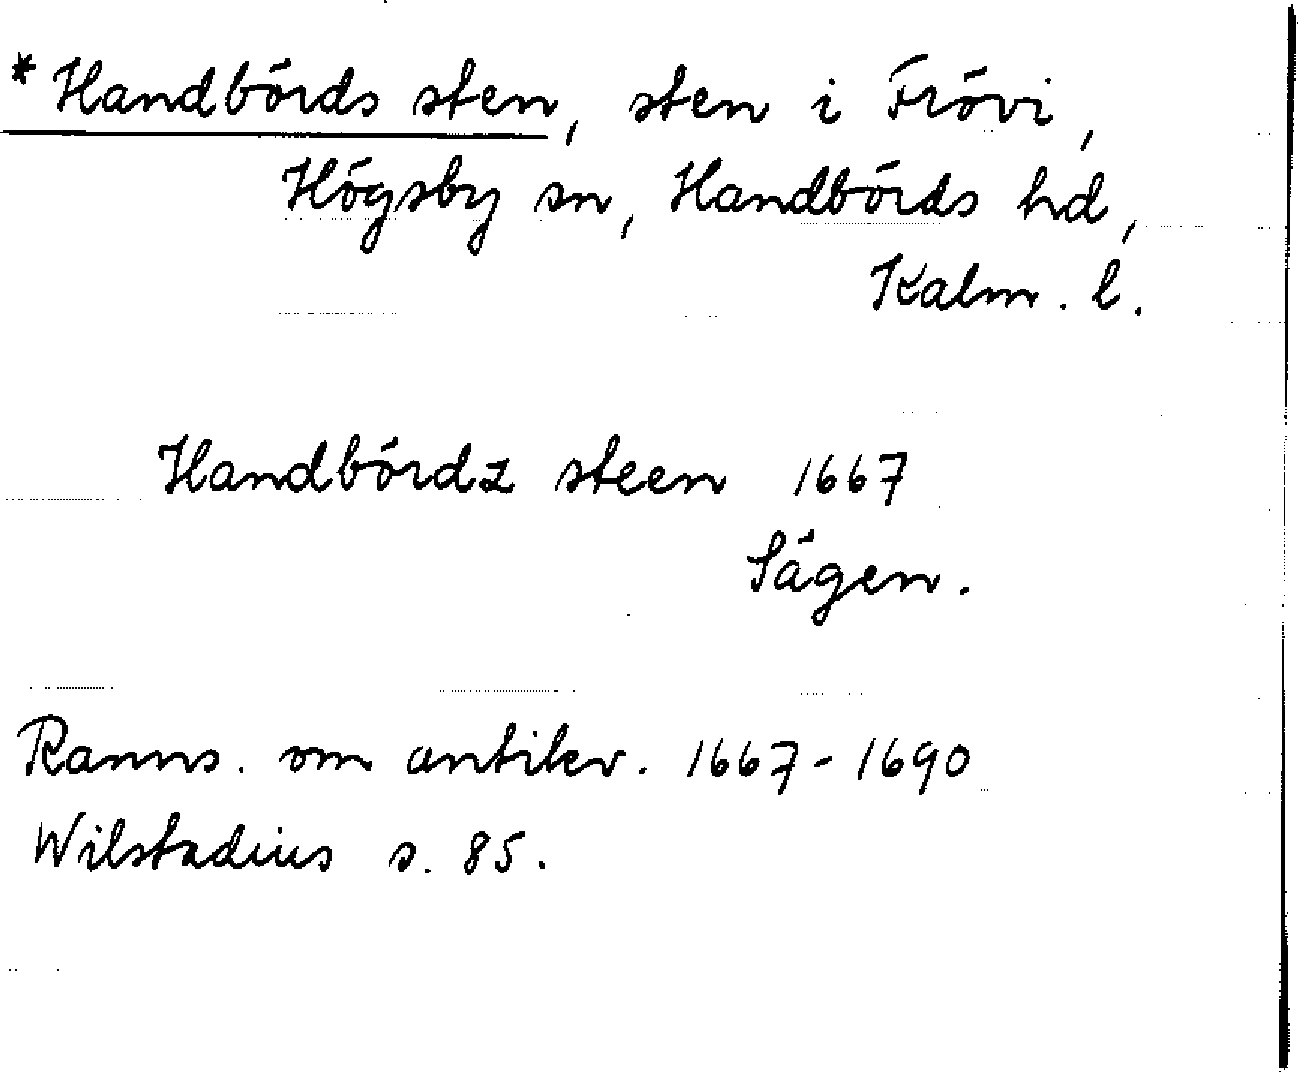 * Handbörds sten, sten i Frövi,
Högsby sn, Handbörds hd,
Kalm. l.
Handbördz steen 1667
Sägen.
Ranns. om antikv. 1667-1690
Wilstadius s. 85.